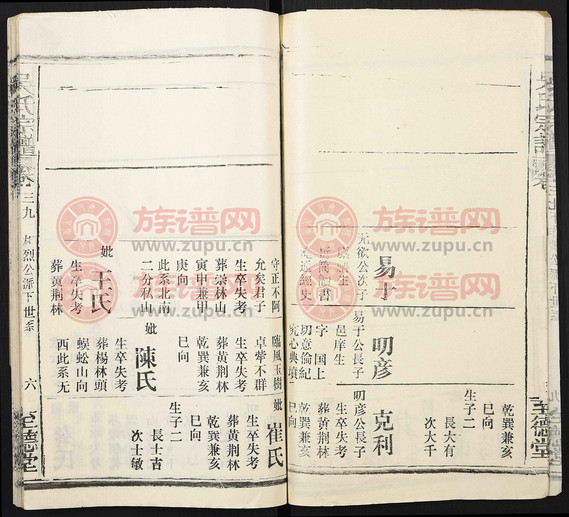 乾巽兼亥
巳向
生子二
長大有
次大千
至德堂
易于
无欲公次子
克利
叨彦公長子
生卒失考
葬黄荆林
乾巽兼亥
巳向
叨彦
易于公長子
邑庠生
字国上
切意倫紀
究心典墳
守正不阿
允矣君子
生卒失考
葬崇林山
寅甲兼甲
庚向
此系北南
二分私山
妣王氏
生卒失考
葬黄荆林
臨風玉樹
卓犖不群
生卒失考
葬黄荆林
乾巽兼亥
巳向
妣陳氏
生卒失考
葬楊林頭
蜈蚣山向
西此系无
妣崔氏
生卒失考
葬黄荆林
乾巽兼亥
巳向
生子二
長士吉
次士敏
吳氏宗譜
卷三九
烈公派下世系
六
至德堂
族谱网
www.zupu.cn
族谱网
www.zupu.cn